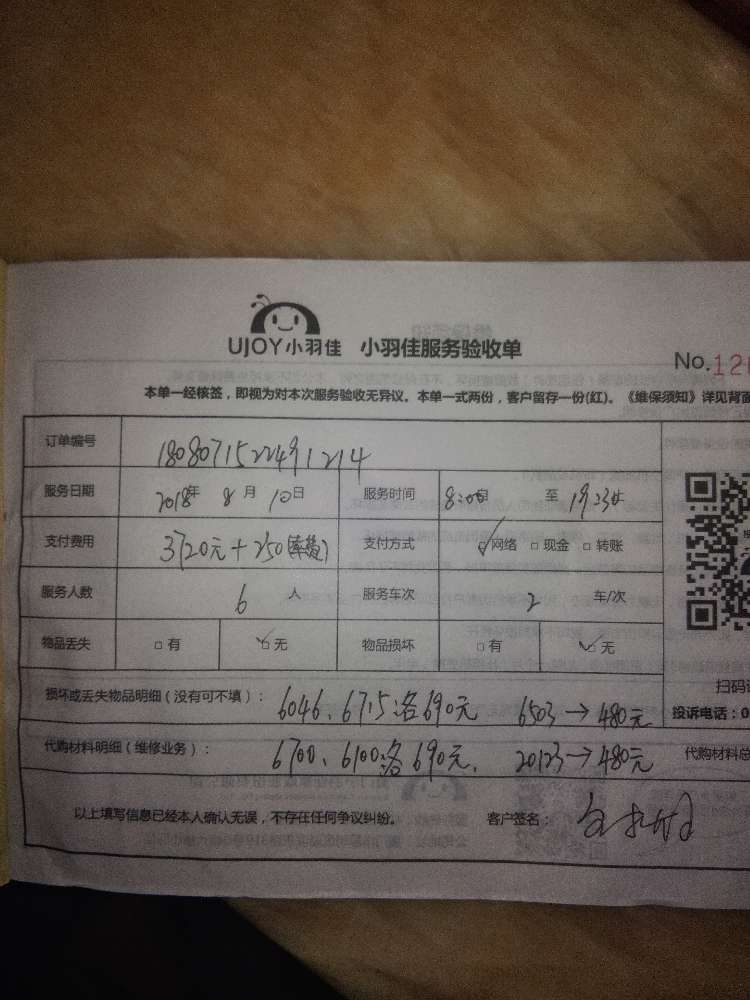 UJOY小羽佳 小羽佳服务验收单
No.120
本单一经核签，即视为对本次服务验收无异议。本单一式两份，客户留存一份(红)。《维保须知》详见背面
订单编号 1808071522491214
服务日期 2018年 8月 10日 服务时间 8:00 至 19:30
支付费用 3720元+250(车费) 支付方式 ☑网络 □现金 □转账
服务人数 6 人 服务车次 2 车/次
物品丢失 □有 ☑无 物品损坏 □有 ☑无
扫码
损坏或丢失物品明细（没有可不填）： 6046、6715各690元 6503→480元 投诉电话：0
代购材料明细（维修业务）： 6700、6100各690元、 20123→480元 代购材料总
以上填写信息已经本人确认无误，不存在任何争议纠纷。 客户签名：